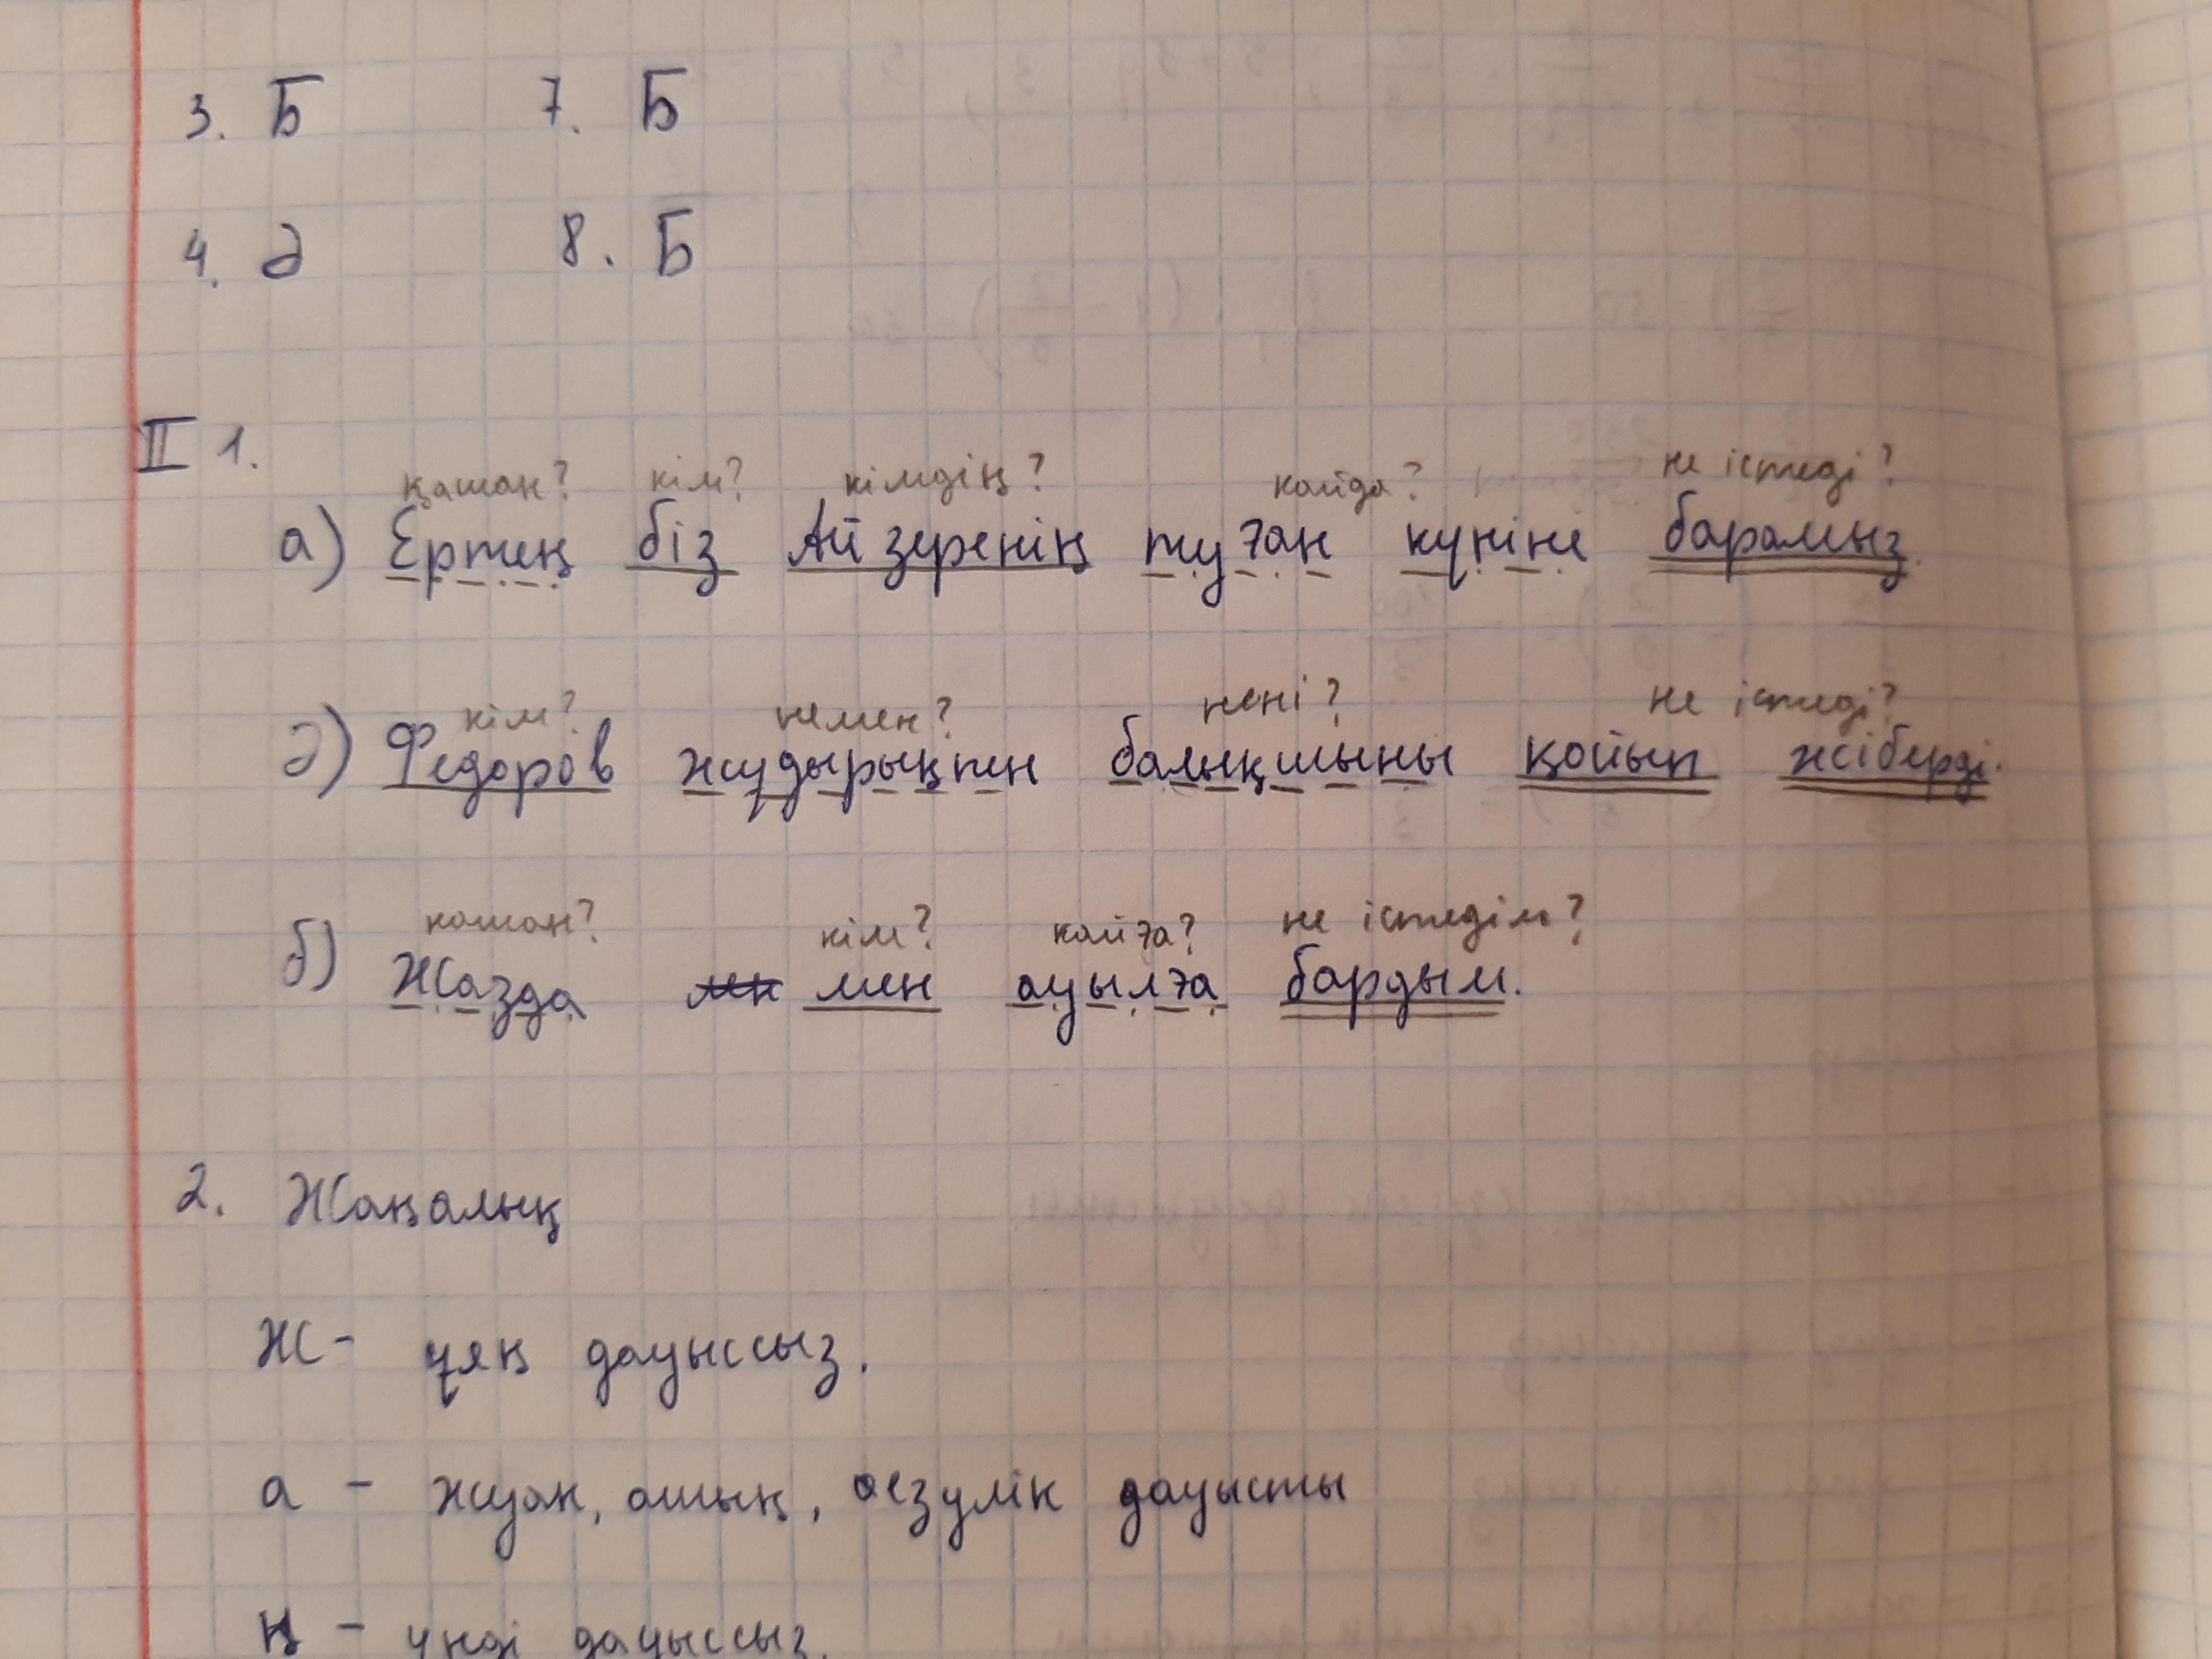 3. Б 7. Б
4. Ә 8. Б
II 1.
қашан? кім? кімдің? қайда? не істеді?
а) Ертең біз Айзеренің туған күніне барамыз.
кім? немен? нені? не істеді?
ә) Федоров жұдырықпен балықшыны қойып жіберді.
қашан? кім? қайға? не істедім?
б) Жазда мен ауылға бардым.
2. Жаңалық
Ж - ұяң дауыссыз.
а - жуан, ашық, езулік дауысты
ң - үнді дауыссыз.